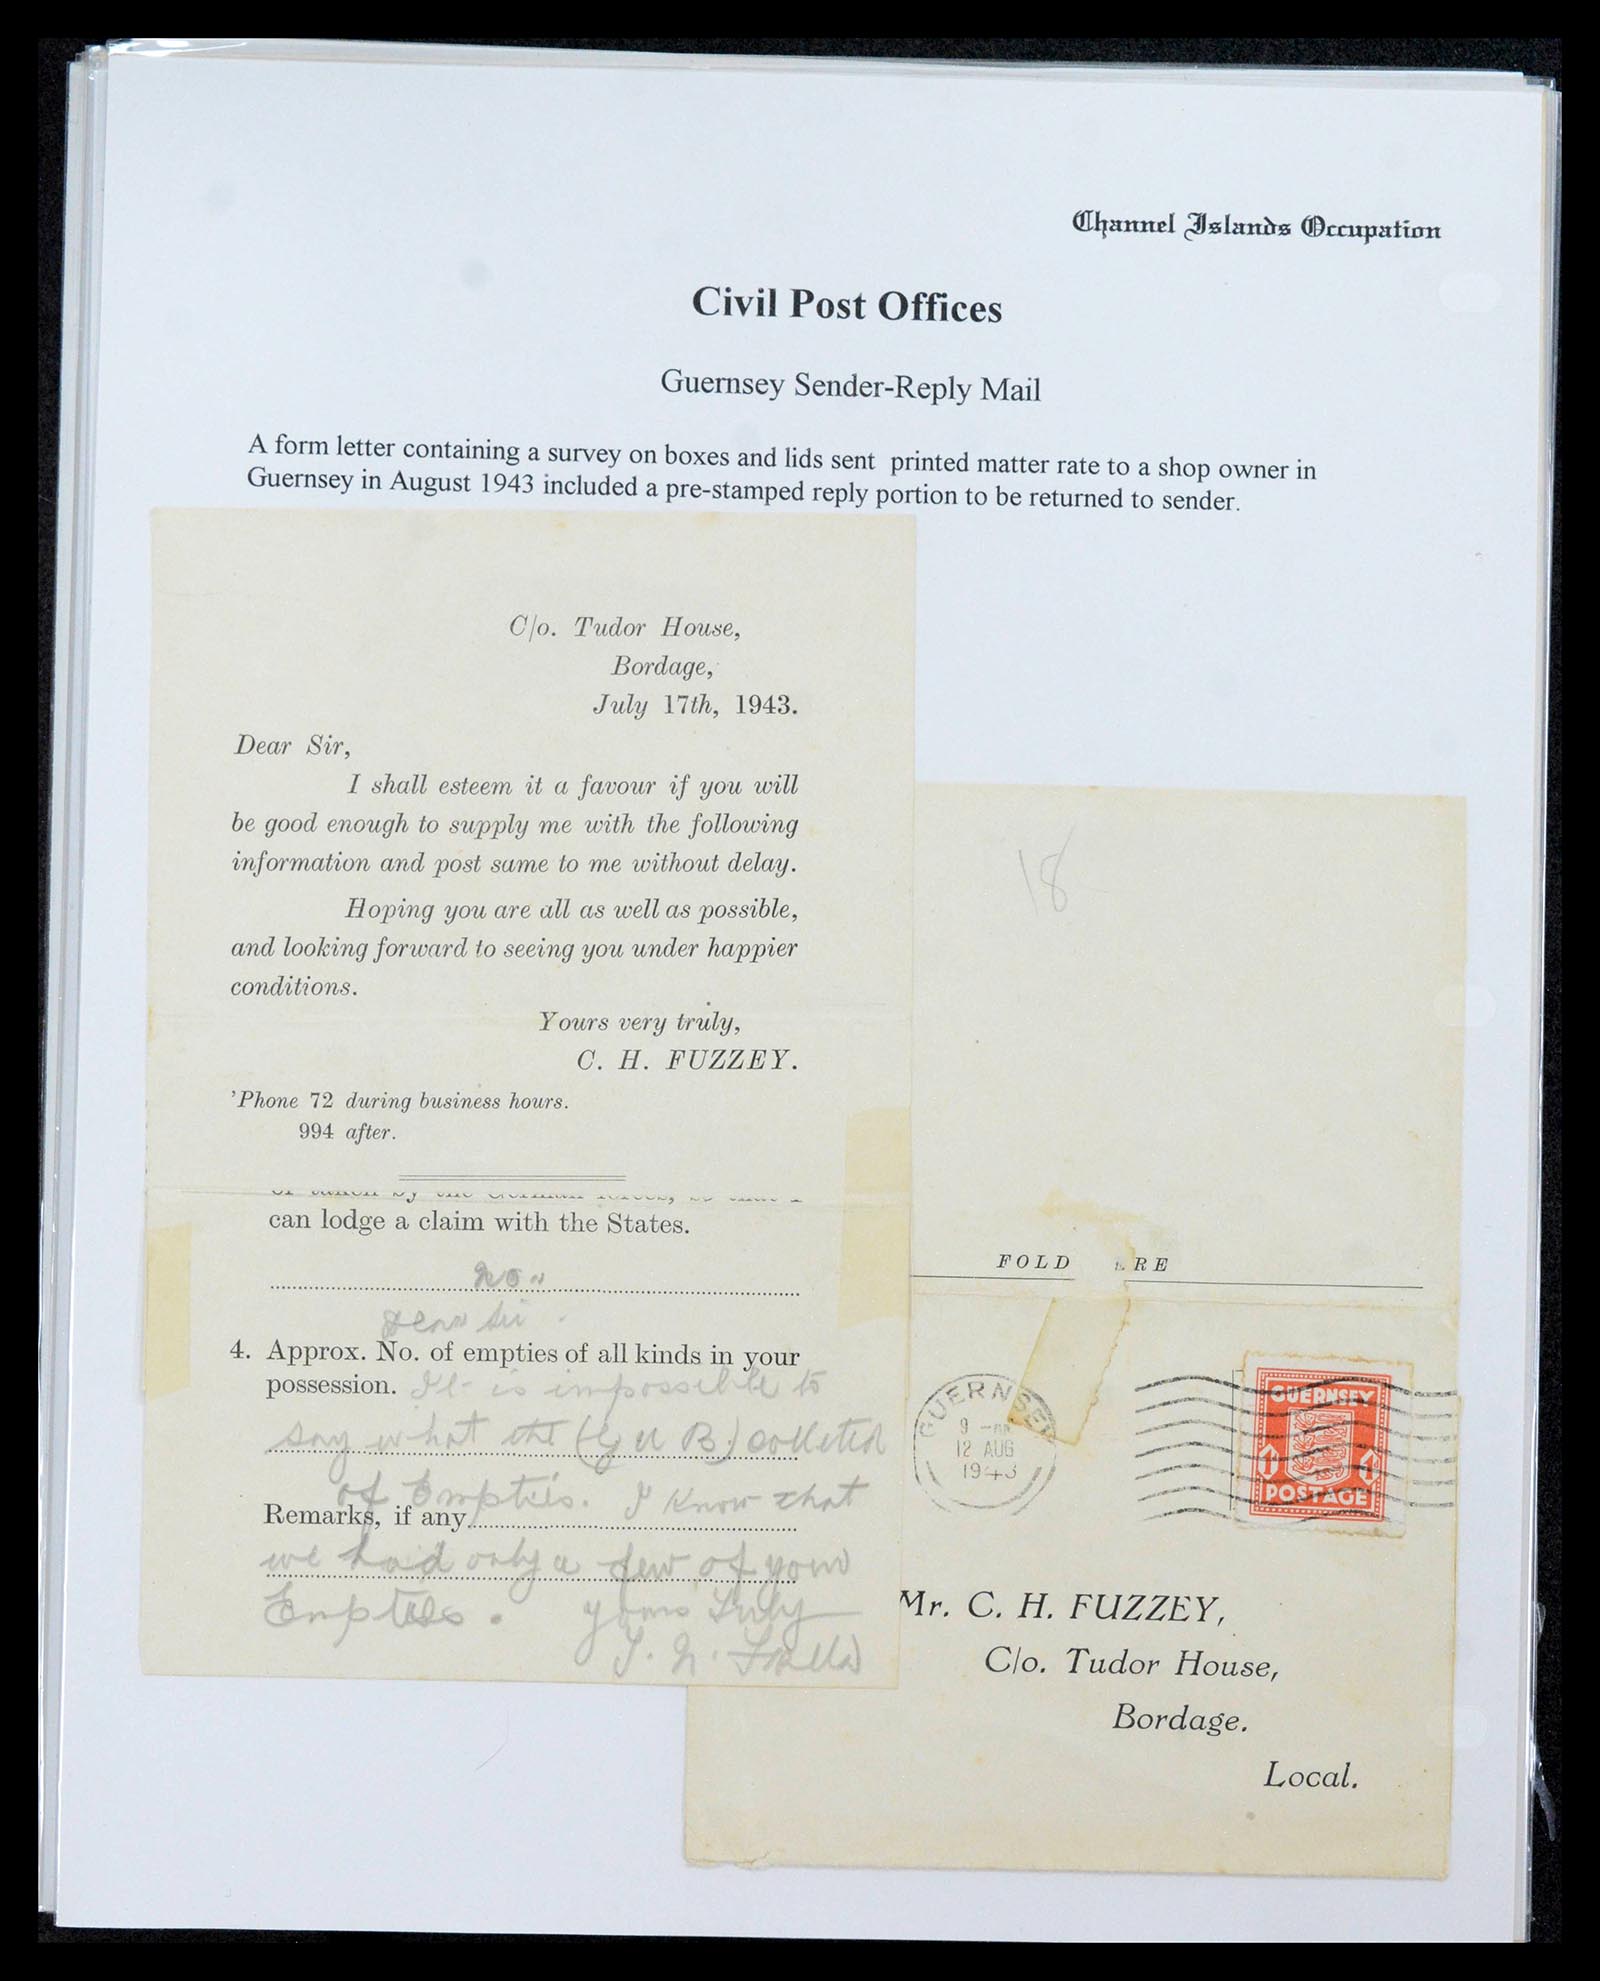 Channel Islands Occupation
Civil Post Offices
Guernsey Sender-Reply Mail
A form letter containing a survey on boxes and lids sent printed matter rate to a shop owner in
Guernsey in August 1943 included a pre-stamped reply portion to be returned to sender.
C/o. Tudor House,
Bordage,
July 17th, 1943.
Dear Sir,
I shall esteem it a favour if you will
be good enough to supply me with the following
information and post same to me without delay.
Hoping you are all as well as possible,
and looking forward to seeing you under happier
conditions.
Yours very truly,
C. H. FUZZEY.
'Phone 72 during business hours.
994 after.
or taken by the German forces, so that I
can lodge a claim with the States.
Dear Sir
4. Approx. No. of empties of all kinds in your
possession. It is impossible to
say what the (G U B) colleted
of Empties. I Know that
Remarks, if any
we had only a few of your
Empties. yours Truly
18
FOLD RE
GUERNSEY
9 - AM
12 AUG
1943
GUERNSEY
1D 1D
POSTAGE
Mr. C. H. FUZZEY,
C/o. Tudor House,
Bordage.
Local.